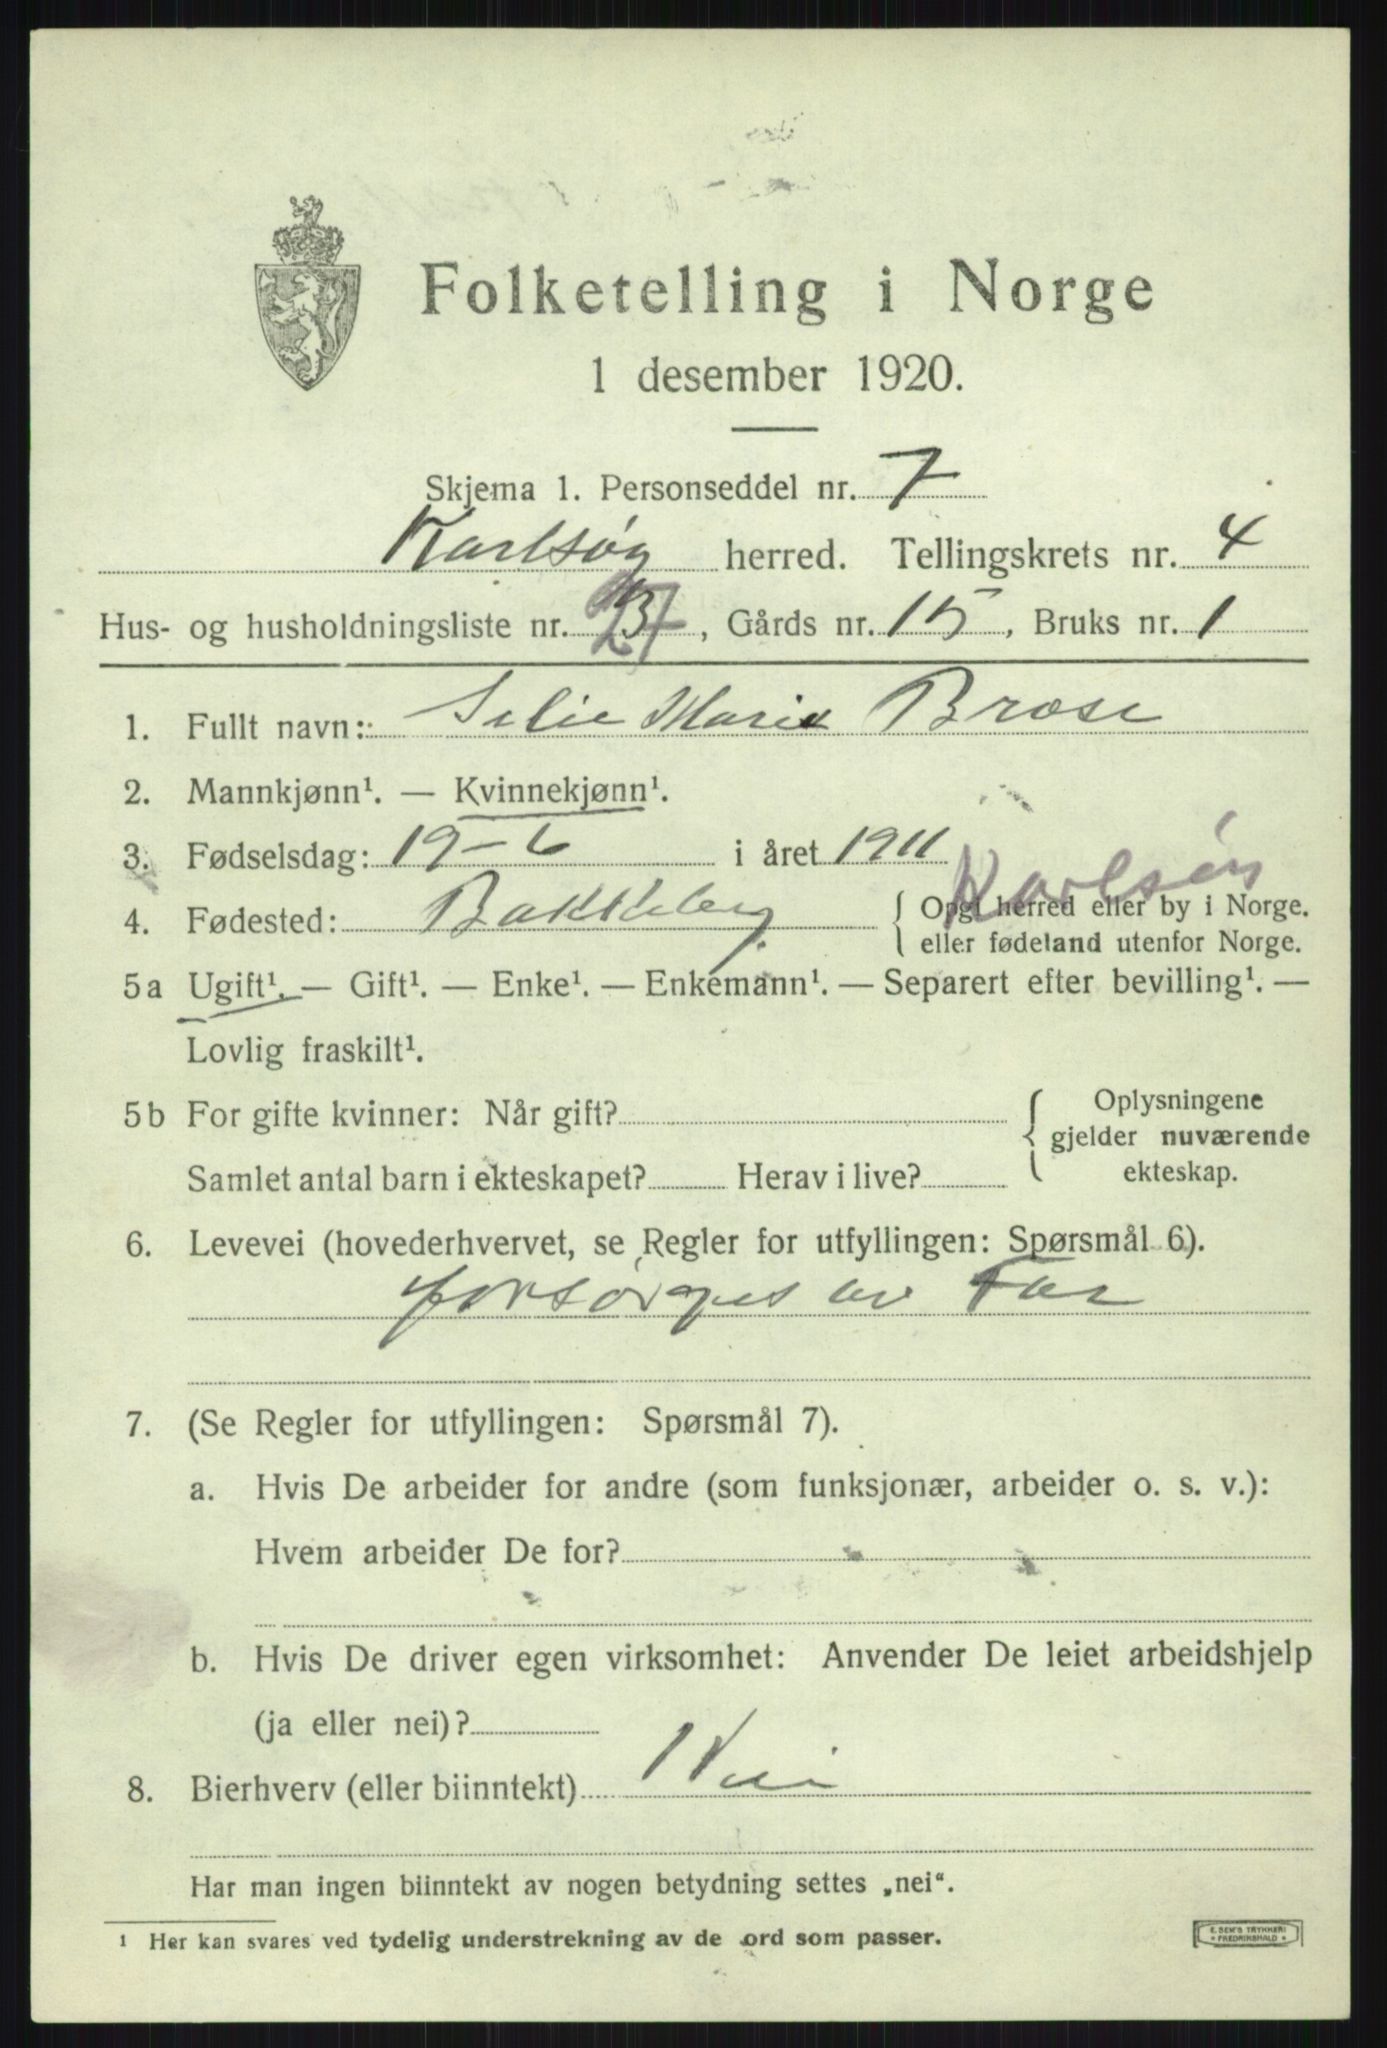 Folketelling i Norge
1 desember 1920.
Skjema 1. Personseddel nr. 7
Karlsøy herred. Tellingskrets nr. 4
Hus- og husholdningsliste nr. , Gårds nr. 15, Bruks nr. 1
1. Fullt navn: Marie
2. Mannkjønn¹. — Kvinnekjønn¹.
3. Fødselsdag: 19-6 i året 1911
Karlsøy
4. Fødested: Bakkeby. { Opgi herred eller by i Norge.
eller fødeland utenfor Norge.
5a Ugift¹. — Gift¹. — Enke¹. — Enkemann¹. — Separert efter bevilling¹. —
Lovlig fraskilt¹.
5b For gifte kvinner: Når gift? { Oplysningene
gjelder nuværende
Samlet antal barn i ekteskapet? Herav i live? ekteskap.
6. Levevei (hovederhvervet, se Regler for utfyllingen: Spørsmål 6).
forsørges av Far
7. (Se Regler for utfyllingen: Spørsmål 7).
a. Hvis De arbeider for andre (som funksjonær, arbeider o. s. v.):
Hvem arbeider De for?
b. Hvis De driver egen virksomhet: Anvender De leiet arbeidshjelp
(ja eller nei)?
8. Bierhverv (eller biinntekt) Nei
Har man ingen biinntekt av nogen betydning settes „nei“.
¹ Her kan svares ved tydelig understrekning av de ord som passer.
E. SEM'S TRYKKERI
* FREDRIKSHALD *